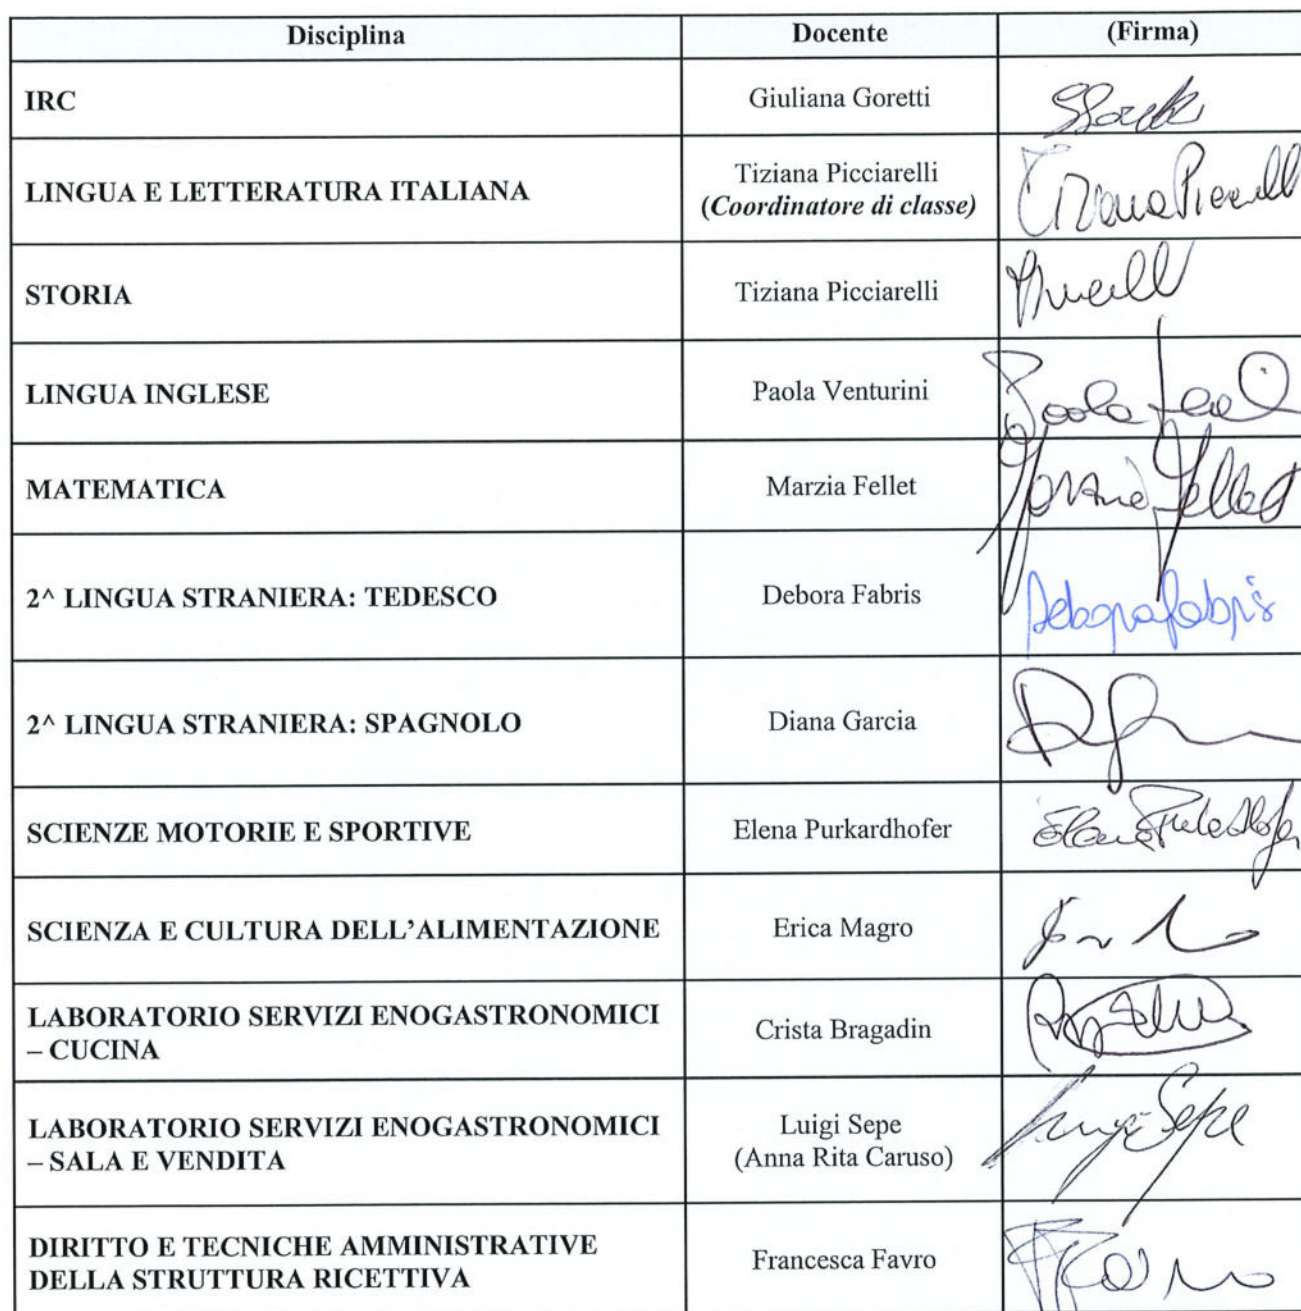 Disciplina Docente (Firma)
IRC Giuliana Goretti
LINGUA E LETTERATURA ITALIANA Tiziana Picciarelli
(Coordinatore di classe)
STORIA Tiziana Picciarelli
LINGUA INGLESE Paola Venturini
Paola
MATEMATICA Marzia Fellet Marzia Fellet
2^ LINGUA STRANIERA: TEDESCO Debora Fabris Debora Fabris
2^ LINGUA STRANIERA: SPAGNOLO Diana Garcia
SCIENZE MOTORIE E SPORTIVE Elena Purkardhofer
SCIENZA E CULTURA DELL’ALIMENTAZIONE Erica Magro
LABORATORIO SERVIZI ENOGASTRONOMICI
– CUCINA
Crista Bragadin
LABORATORIO SERVIZI ENOGASTRONOMICI
– SALA E VENDITA
Luigi Sepe
(Anna Rita Caruso)
Luigi Sepe
DIRITTO E TECNICHE AMMINISTRATIVE
DELLA STRUTTURA RICETTIVA
Francesca Favro